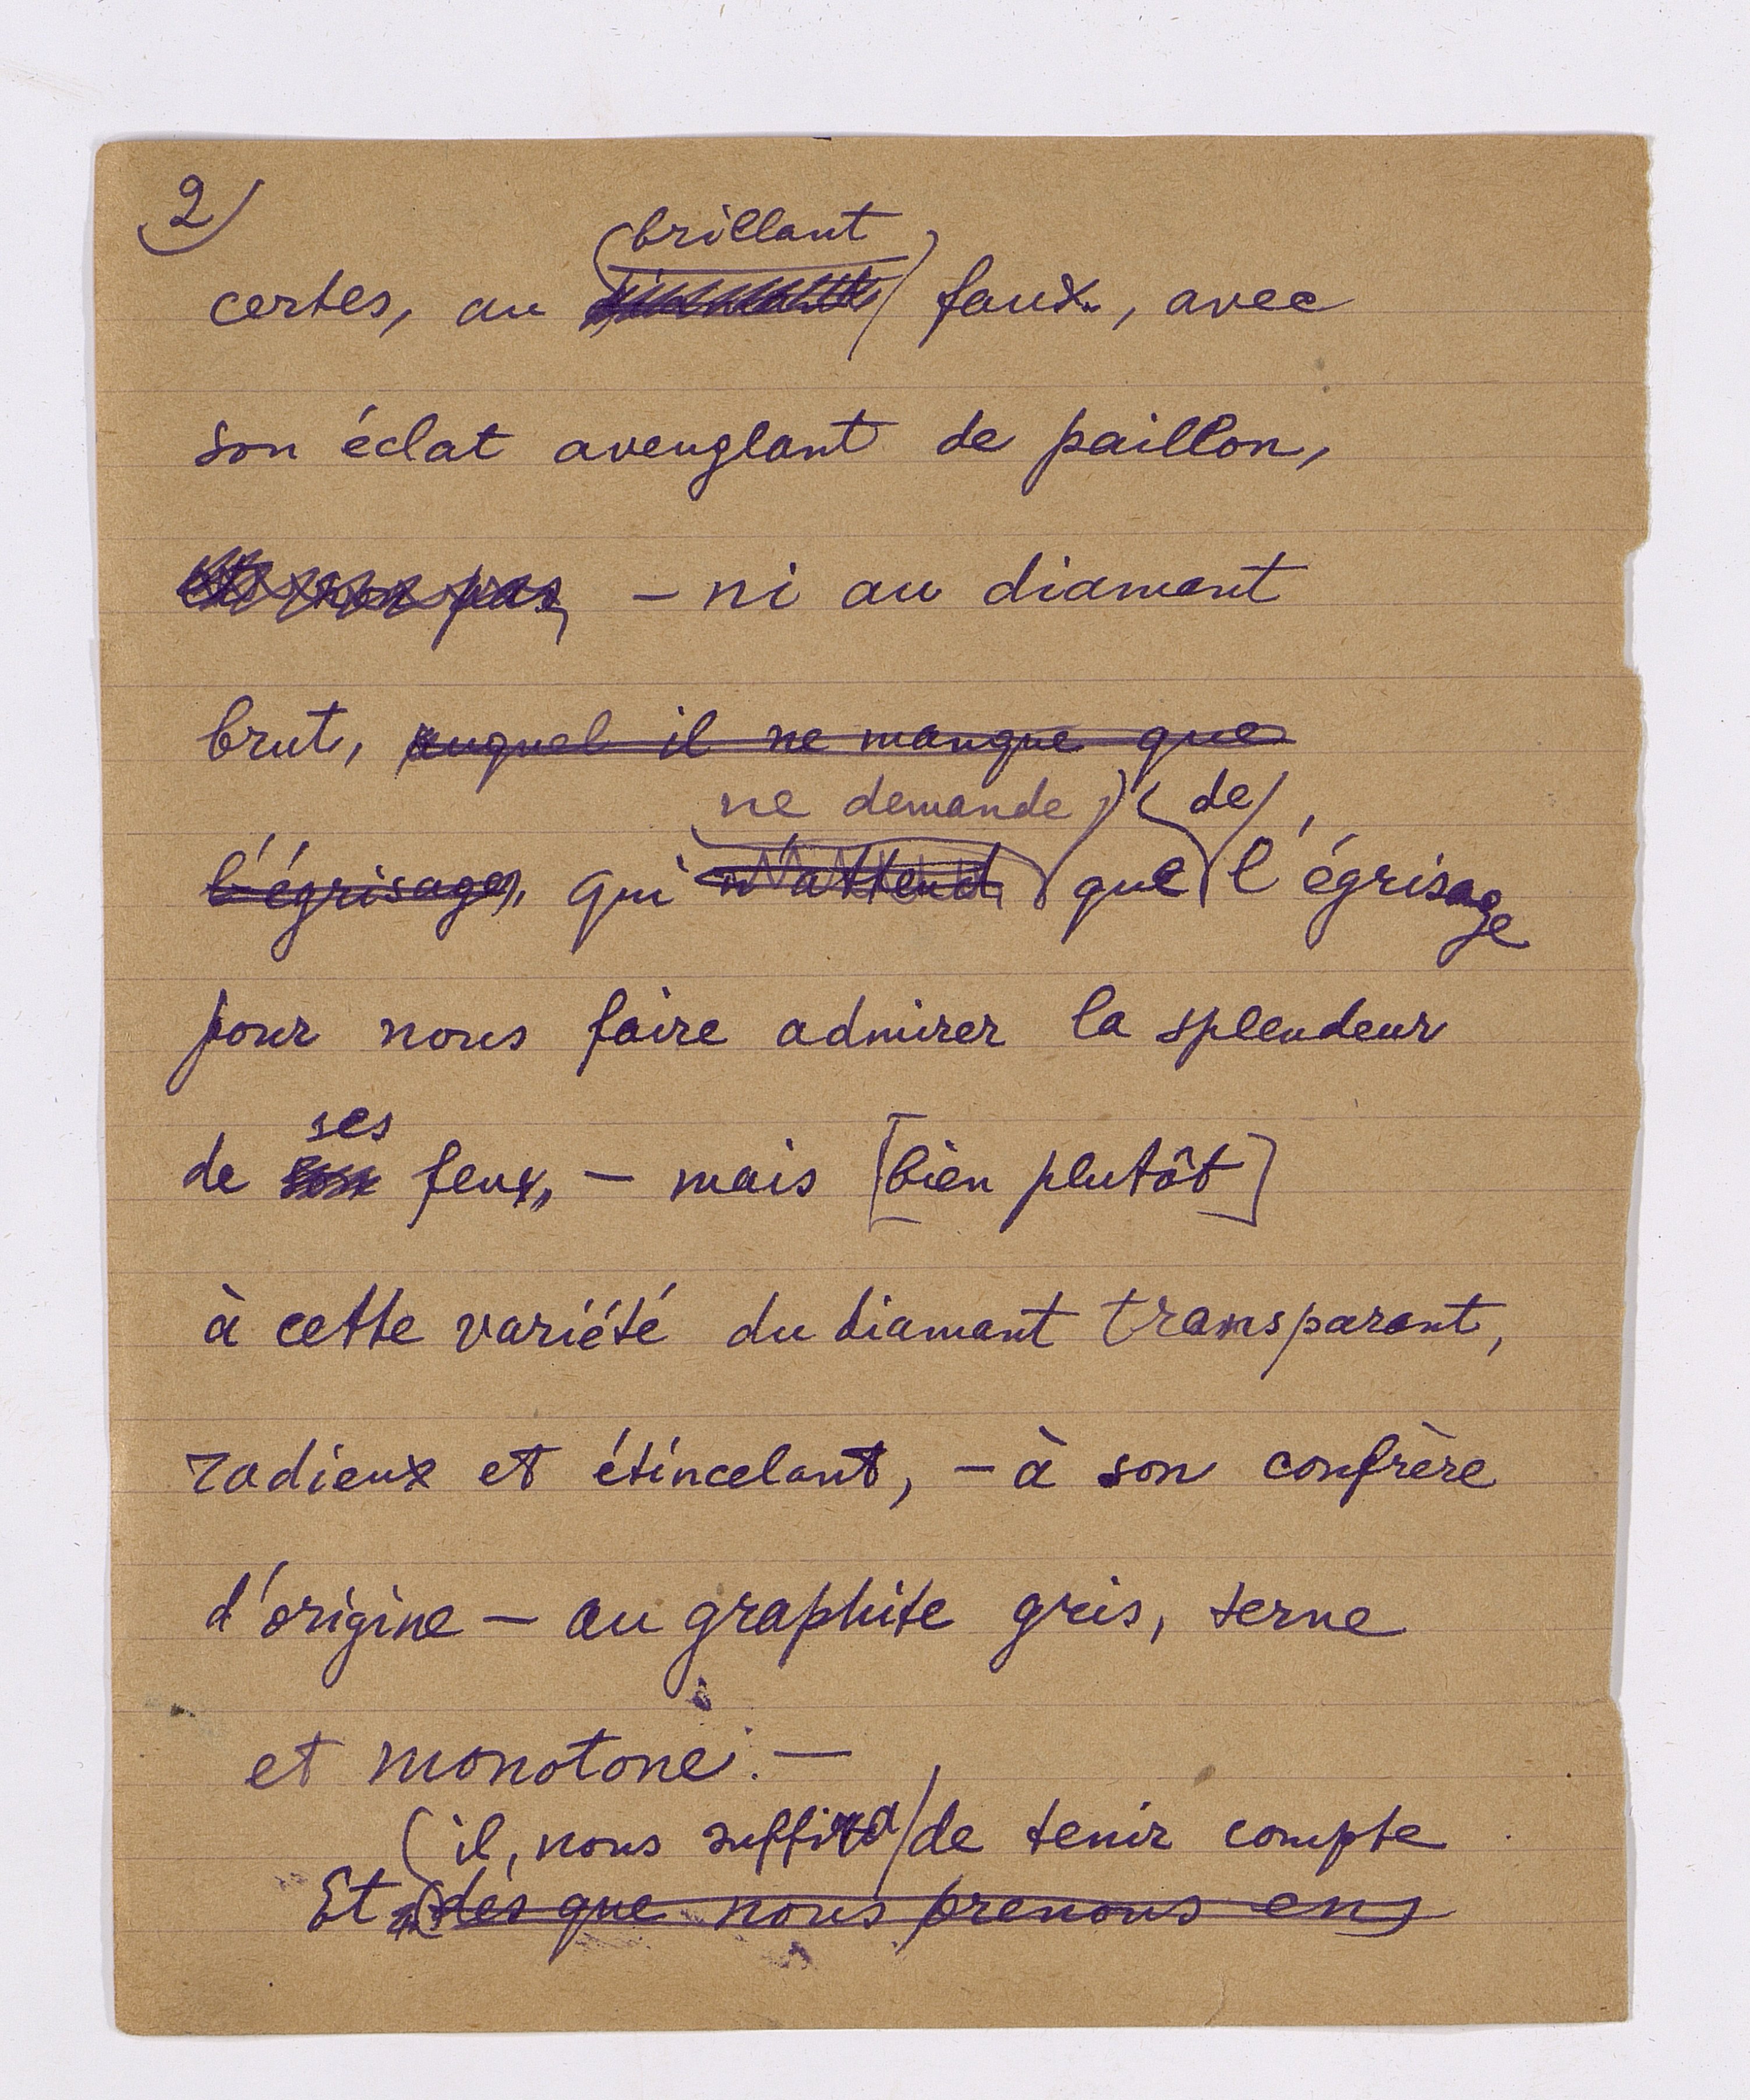 2)
brillant
certes, au faux, avec
son éclat aveuglant de paillon,
non pas, – ni au diamant
brut, auquel il ne manque que
ne demande de
l'égrisage, qui n'attend que l'égrisage
pour nous faire admirer la splendeur
ses
de son feux, – mais [bien plutôt]
à cette variété du diamant transparant,
radieux et étincelant, – à son confrère
d'origine – au graphite gris, terne
et monotone. –
(il, nous suffira/de tenir compte
Et (dès que nous prenons en